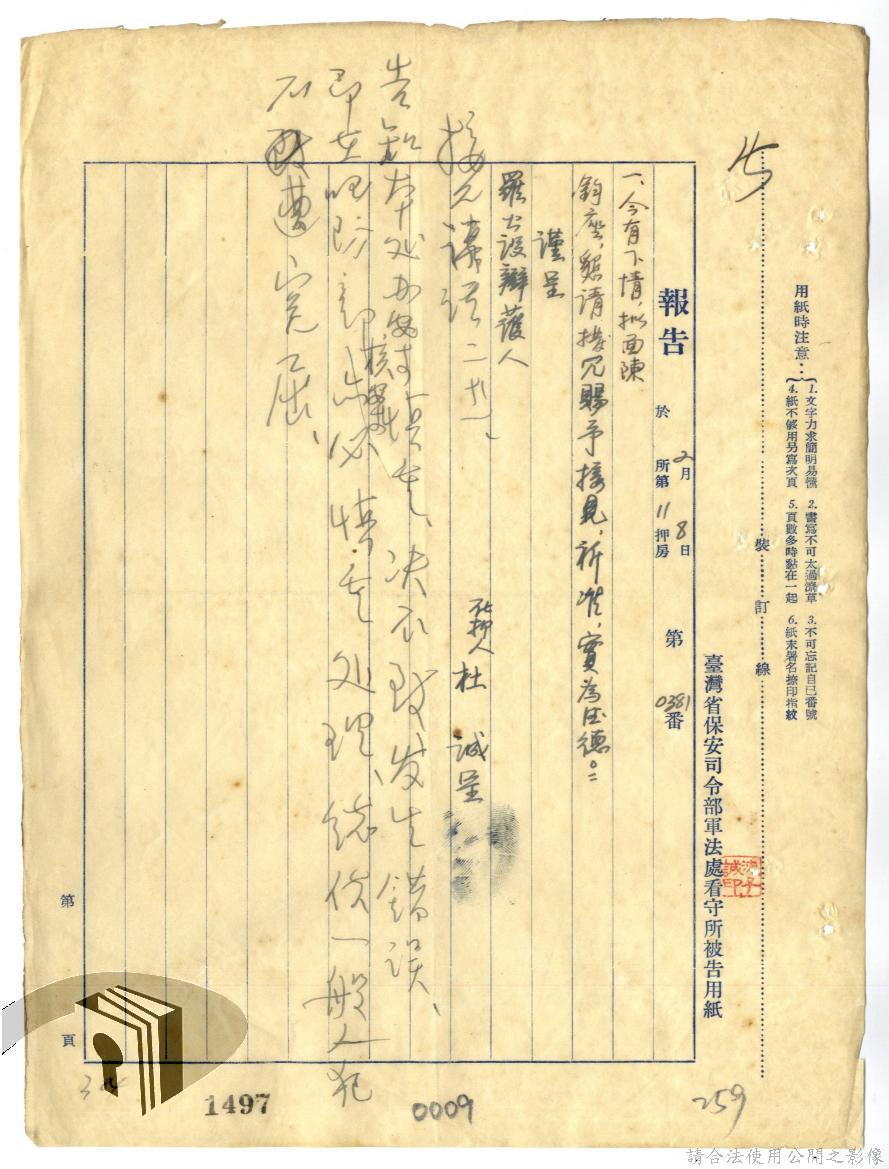 用紙時注意：
1. 文字力求簡明易懂
2. 書寫不可太過潦草
3. 不可忘記自己番號
4. 紙不够用另寫次頁
5. 頁數多時黏在一起
6. 紙末署名捺印指紋
裝訂線
臺灣省保安司令部軍法處看守所被告用紙
報告 於 2月8日 所第11押房 第0381番
一、今有下情，拟面陳
鈞座，懇請撥冗賜予接見，祈准，實為法德。
謹呈
羅公設辯護人
在押人 杜誠呈
接見談話二十一、
告知本处办案核稿时慎重、决不致发生錯误、
即在国防部亦必慎重处理、總使一般人犯
不致遭冤屈、
第 頁
1497
0009
259
請合法使用公開之影像